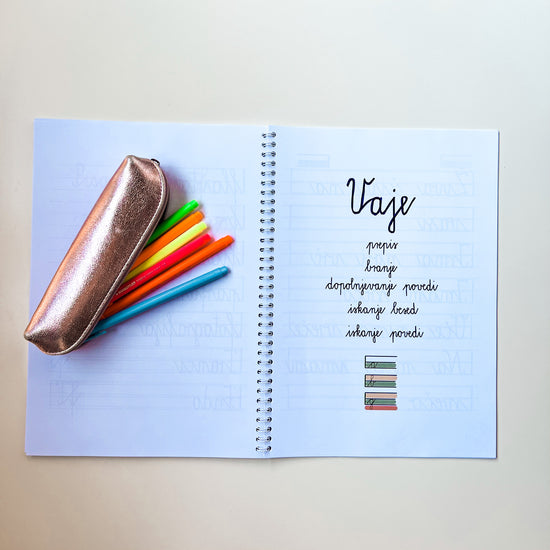 Vaje
prepis
branje
dopolnjevanje povedi
iskanje besed
iskanje povedi
a
b
g